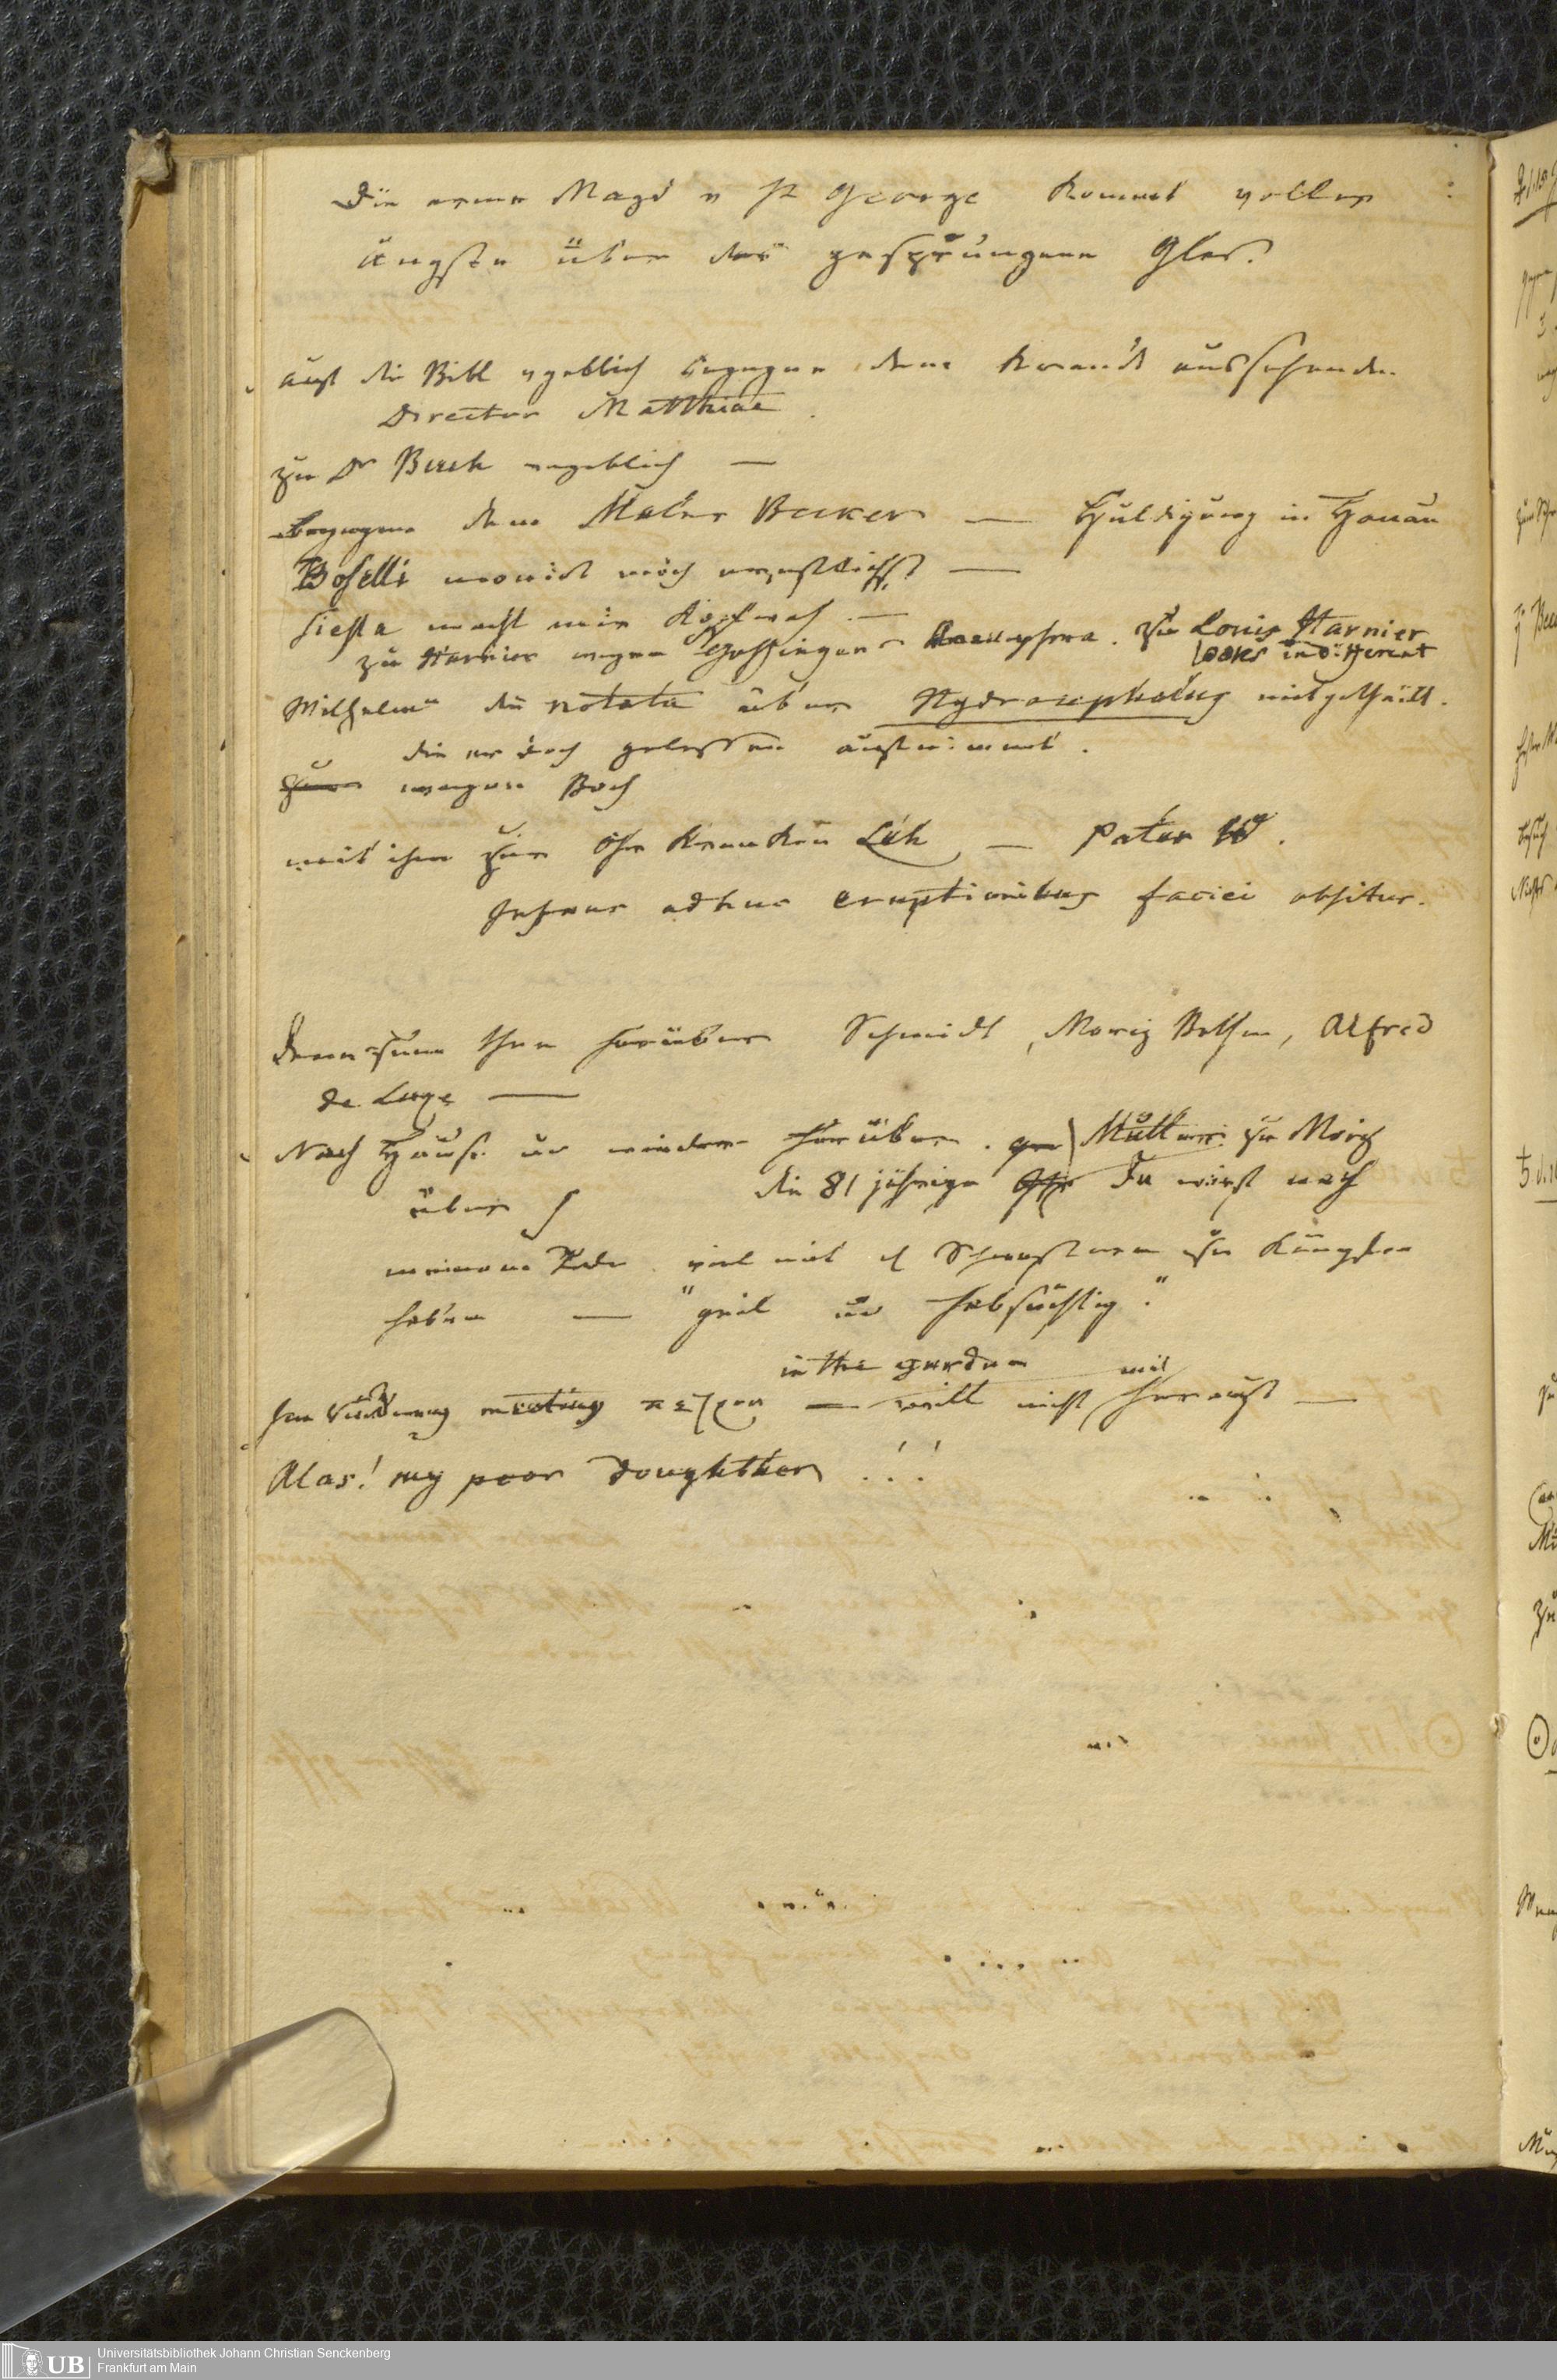 Die arme Magd v St George kommt voller
ängsten über das gesprungene Glas.
auf die Bibl vgeblich begegne dem krank aussehenden
Director Matthiae
zu Dr Buch vergeblich —
begegne dem Maler Becker — Huldigung in Hanau
Boselli monirt mich
Siesta macht mir Kopfweh —
zu Harnier wegen zu Louis Harnier
looks indifferent
Wilhelm die notata über Hydrocephalus mitgetheilt.
die er doch gelassen aufnimmt.
wegen Boch
mit ihm zur Ohr kranken Löh — Pater
Infans adhuc eruptionibus faciei obsitus.
zum Thee herüber Schmidt, Moriz Bethm, Alfred
de Luze —
Nach Hause u wieder herüber. Mutter zu Moriz
über die 81 jährige Du wirst nach
meinem Tode viel mit d Schwestern zu kämpfen
haben — "geil u habsüchtig."
in the garden
meeting — will nicht heraus —
Alas! my poor doughther . ! !
Universitätsbibliothek Johann Christian Senckenberg
Frankfurt am Main
UB